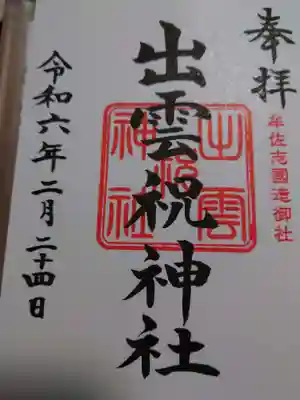 奉拝
牟佐志國造御社
出雲祝神社
出雲祝神社
令和六年二月二十四日